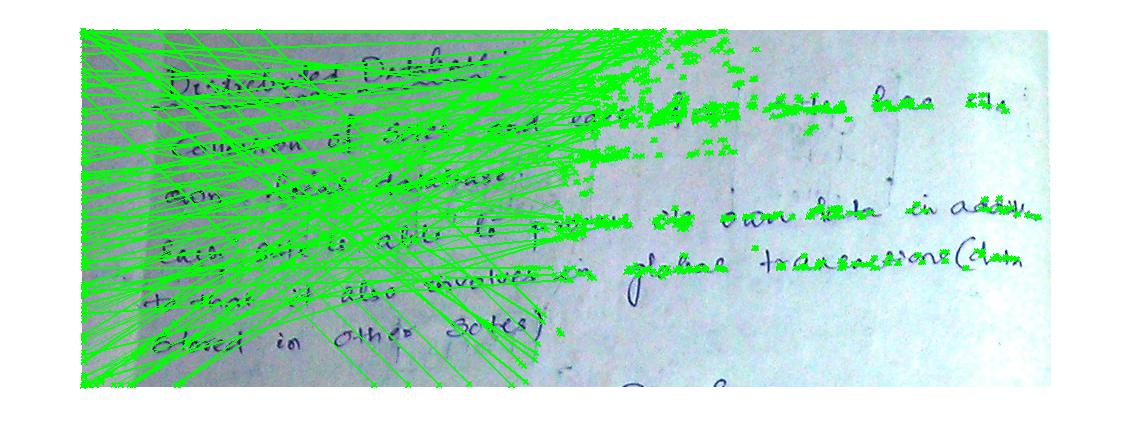 Distributed Database:
Collection of sites and each of sites has its
own local database.
Each site is able to process its own data in addition
to that it also involves in global transactions (data
stored in other sites)